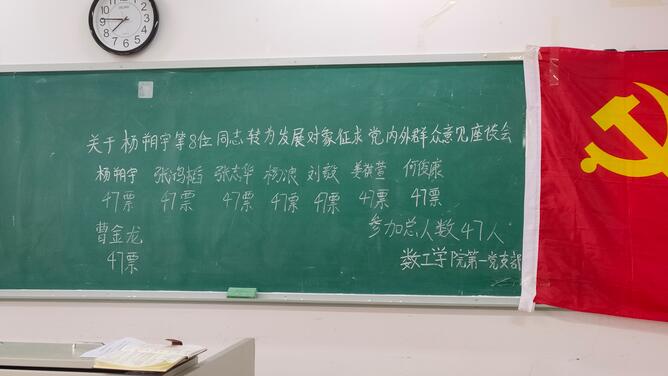 关于杨朔宇等8位同志转为发展对象征求党内外群众意见座谈会
杨朔宇 张鸿韬 张志华 杨浪 刘毅 姜群萱 何俊康
47票 47票 47票 47票 47票 47票 47票
曹金龙 参加总人数47人
47票 数工学院第一党支部